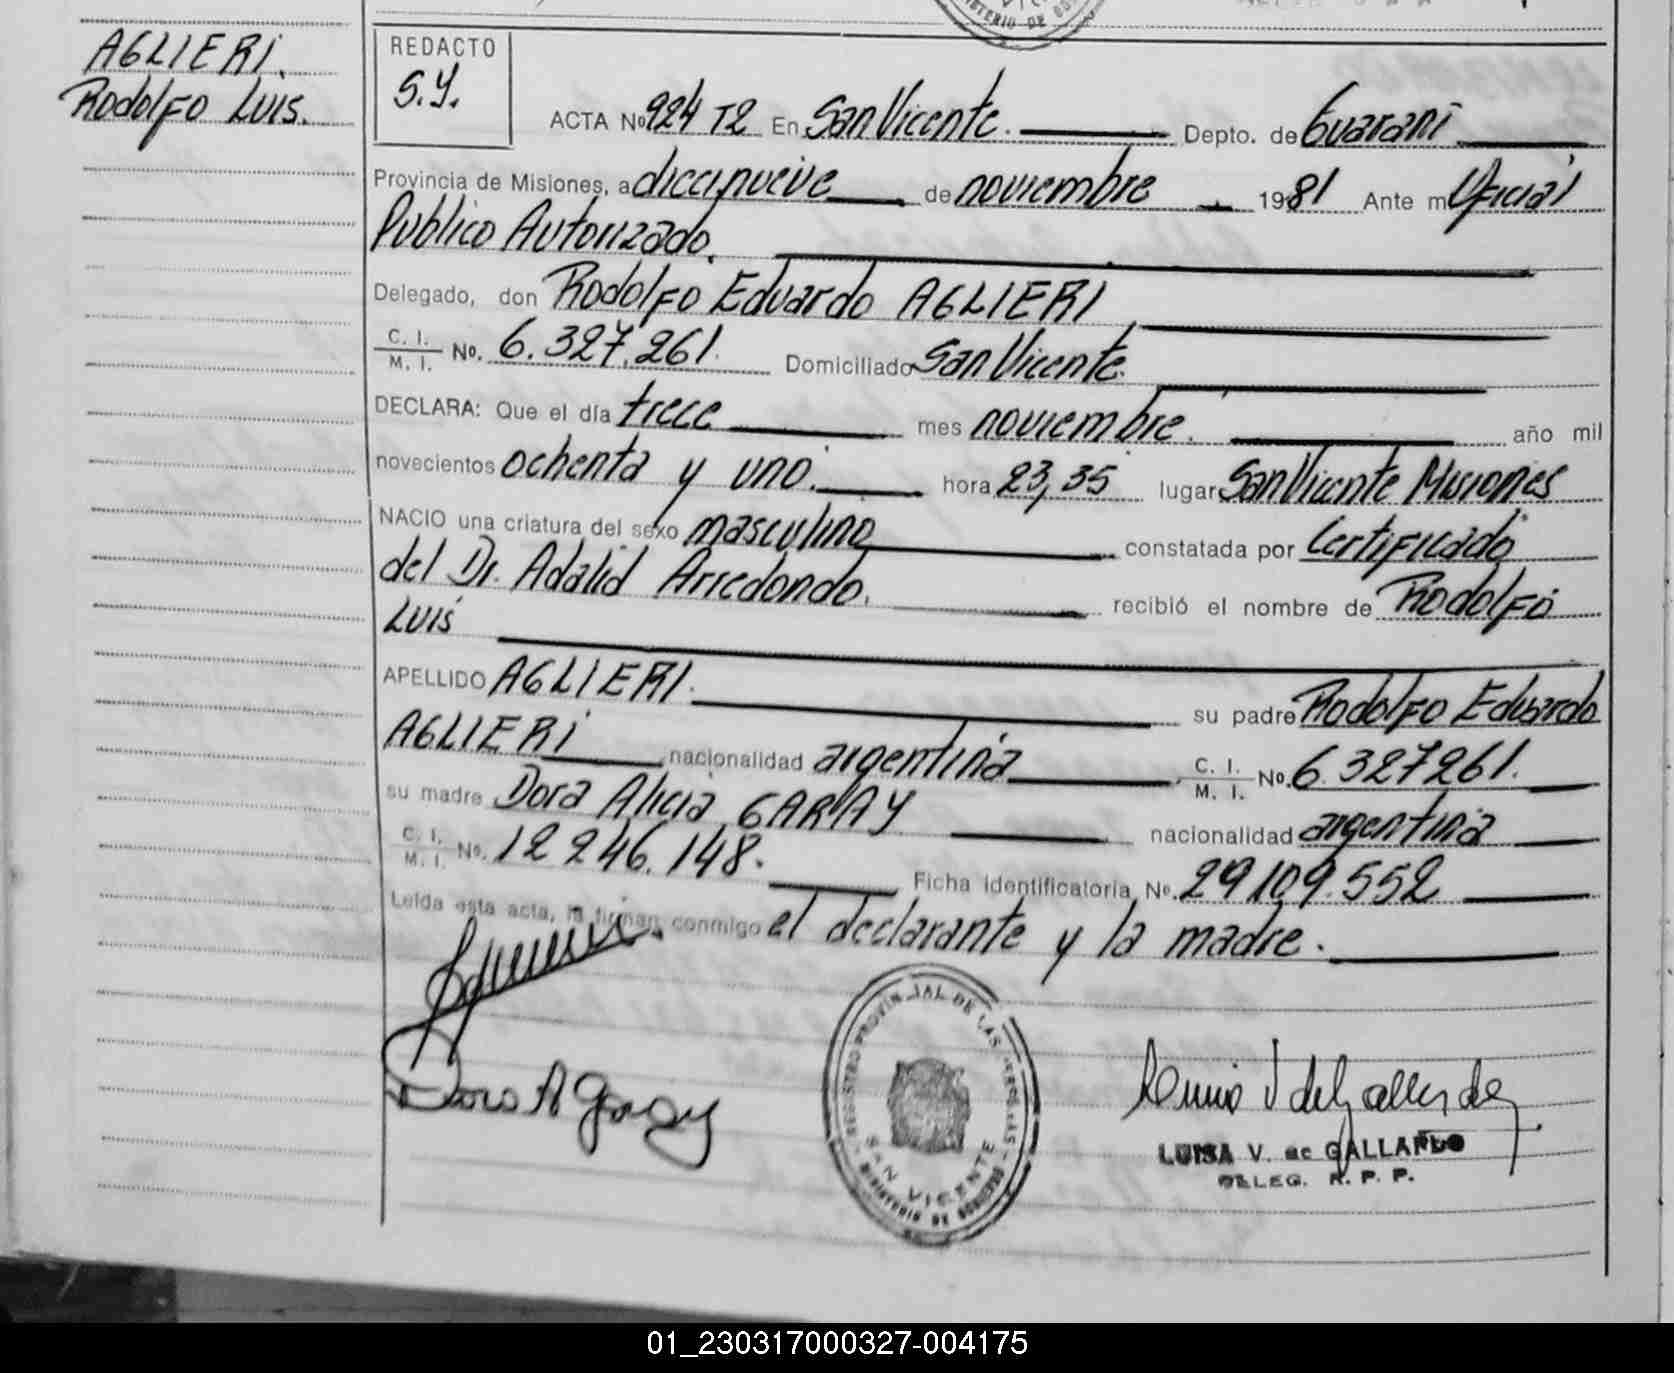 AGLIERI.
Rodolfo Luis.
REDACTO
S.Y.
ACTA No 924 T2 En San Vicente. Depto. de Guaraní
Provincia de Misiones, a diecinueve de noviembre 1981 Ante mí Oficial
Publico Autorizado.
Delegado, don Rodolfo Eduardo AGLIERI
C. I. / M. I. No. 6.327.261. Domiciliado San Vicente.
DECLARA: Que el día trece mes noviembre. año mil
novecientos ochenta y uno. hora 23,35 lugar San Vicente Misiones
NACIO una criatura del sexo masculino constatada por Certificado
del Dr. Adalid Arredondo. recibió el nombre de Rodolfo
Luis
APELLIDO AGLIERI. su padre Rodolfo Eduardo
AGLIERI nacionalidad argentina C. I. / M. I. No. 6.327261.
su madre Dora Alicia GARAY nacionalidad argentina
C. I. / M. I. No. 12 246.148. Ficha identificatoria No. 29109.552
Leída esta acta, la firman conmigo el declarante y la madre.
Dora A Garay
REGISTRO PROVINCIAL DE LAS PERSONAS
SAN VICENTE
MINISTERIO DE GOBIERNO
LUISA V. de GALLARDO
DELEG. R. P. P.
01_230317000327-004175